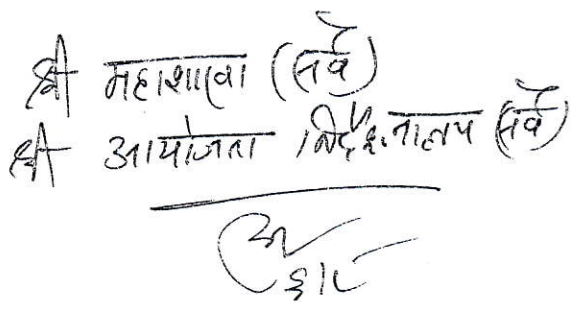 श्री महाशाखा (सर्वै)
श्री आयोजना निर्देशनालय (सर्वै)